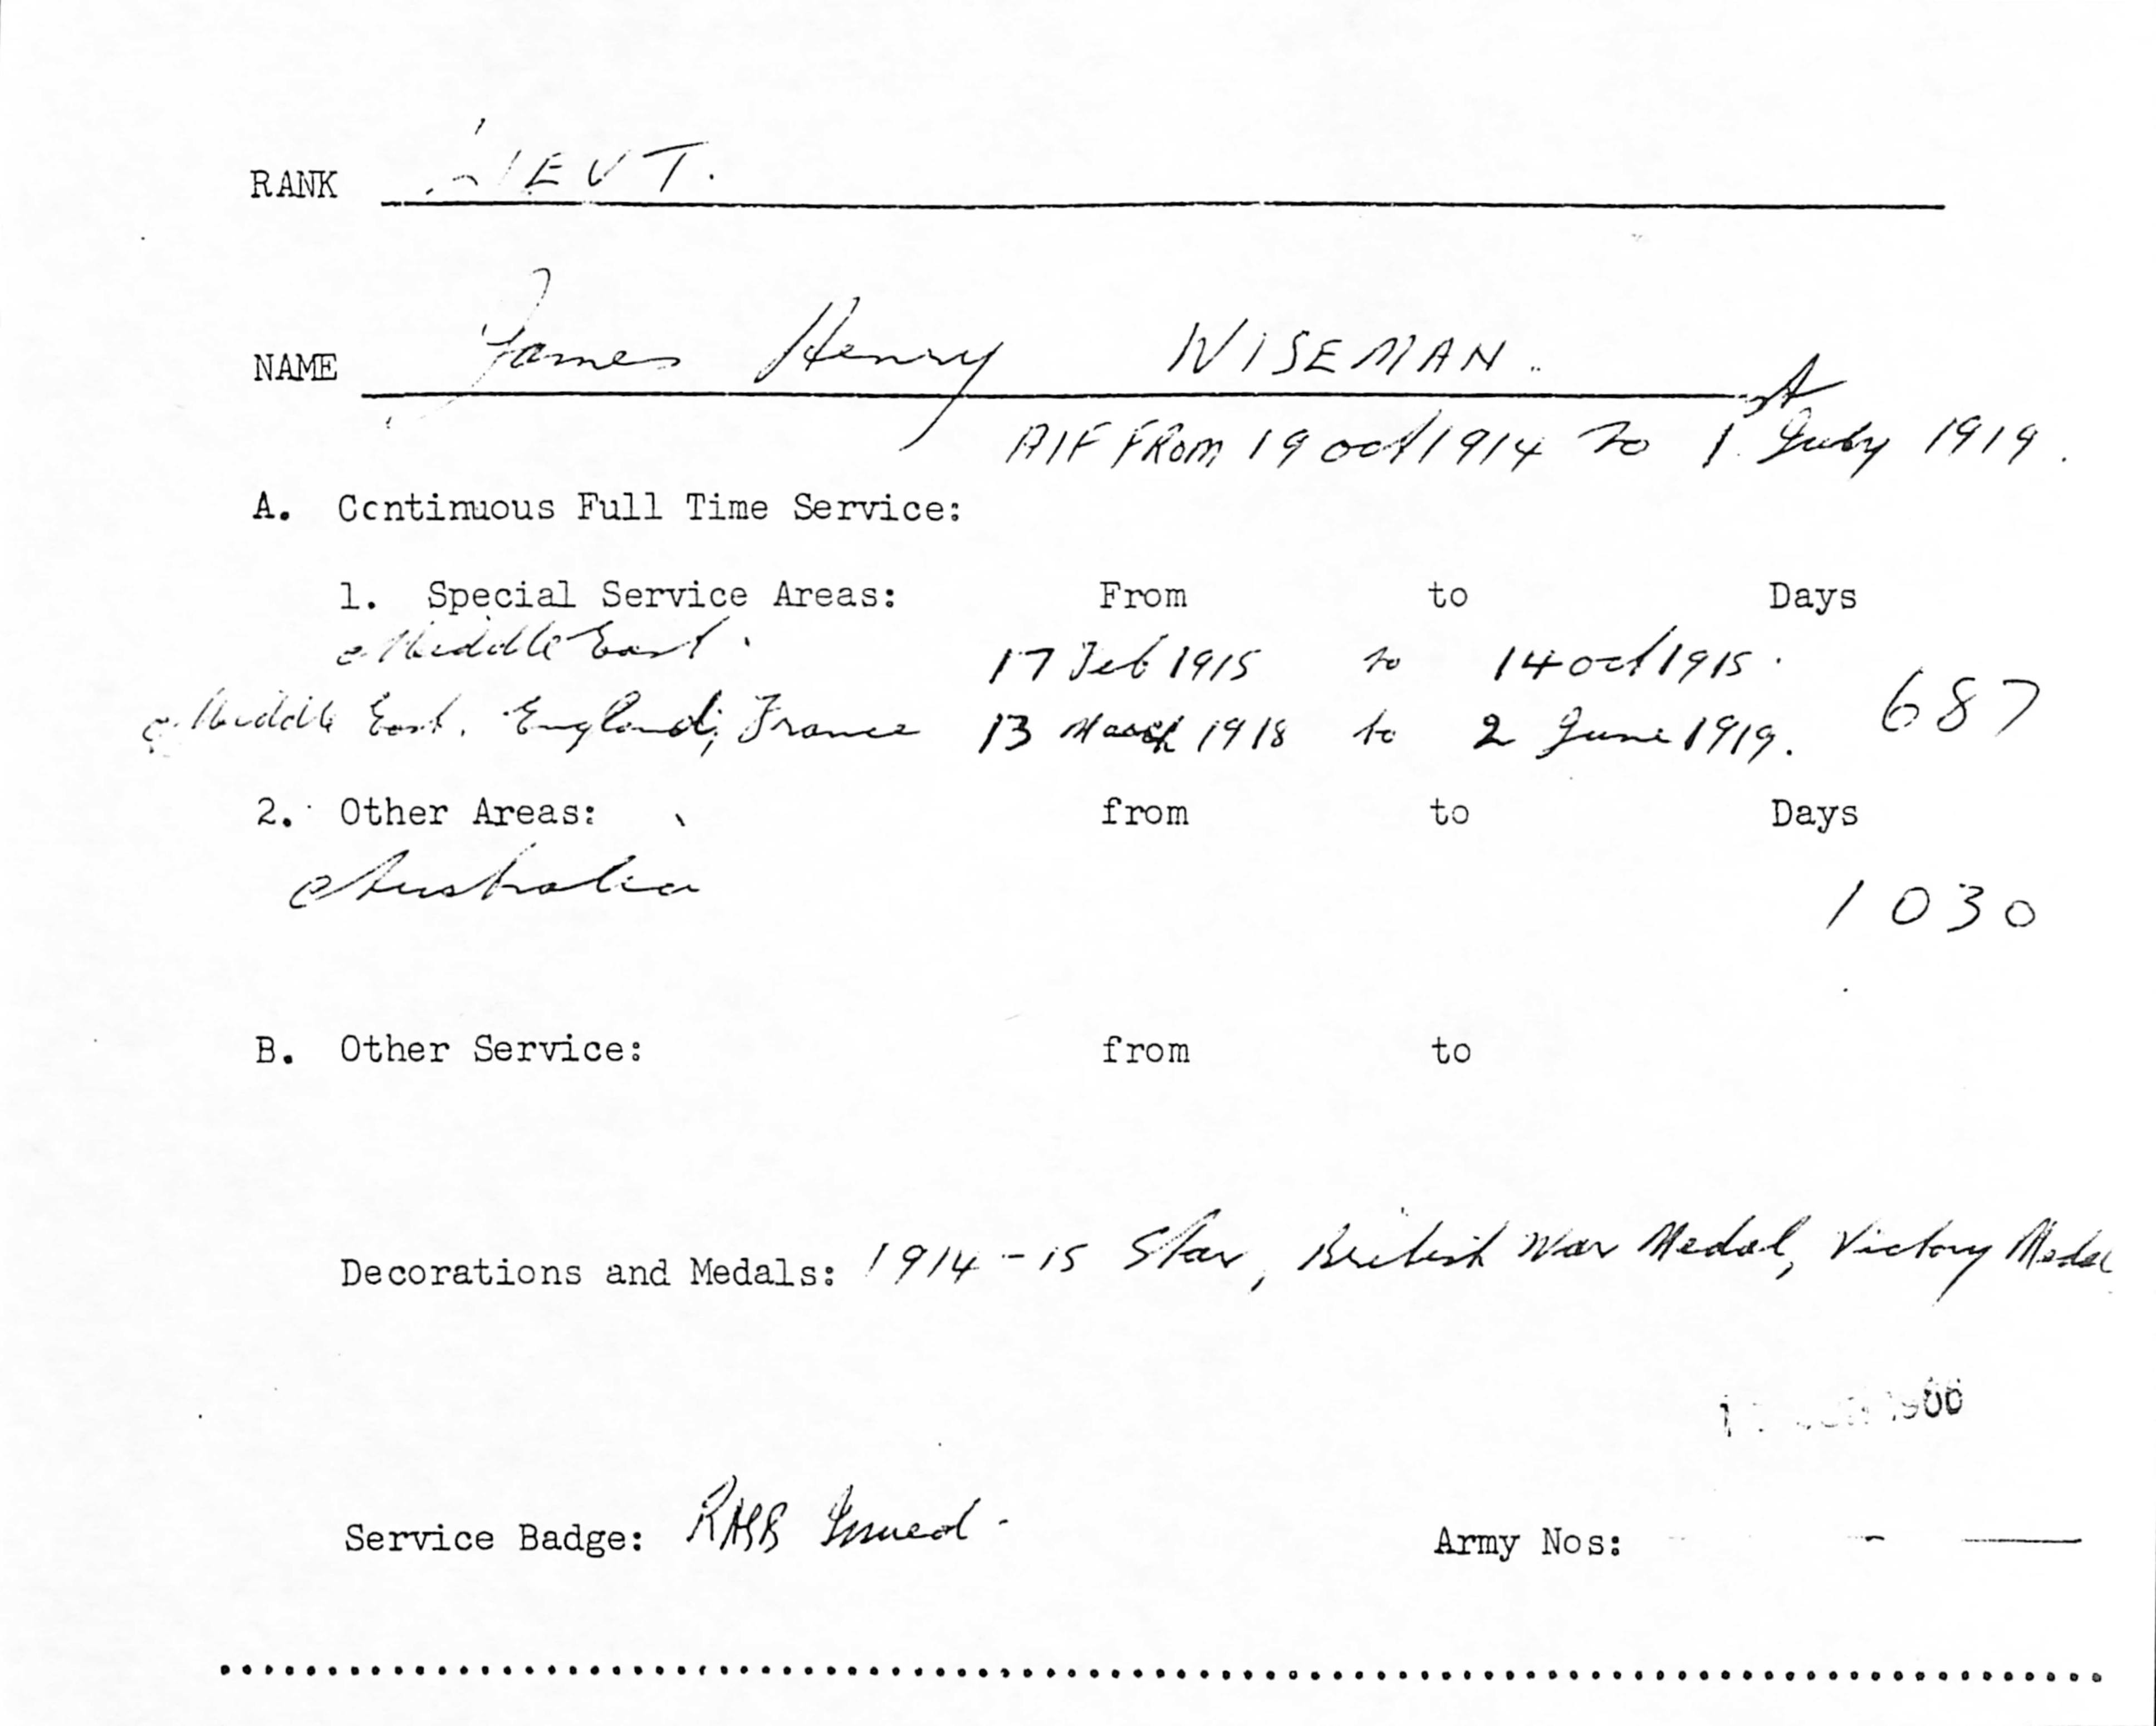 RANK LIEUT.
NAME James Henry WISEMAN.
AIF FROM 19 Oct 1914 to 1st July 1919.
A. Continuous Full Time Service:
1. Special Service Areas: From to Days
Middle East. 17 Feb 1915 to 14 Oct 1915.
Middle East, England, France 13 March 1918 to 2 June 1919. 687
2. Other Areas: from to Days
Australia 1030
B. Other Service: from to
Decorations and Medals: 1914-15 Star, British War Medal, Victory Medal
Service Badge: Issued - Army Nos: - —